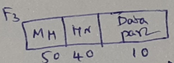 F3
MH HN Data part
50 40 10